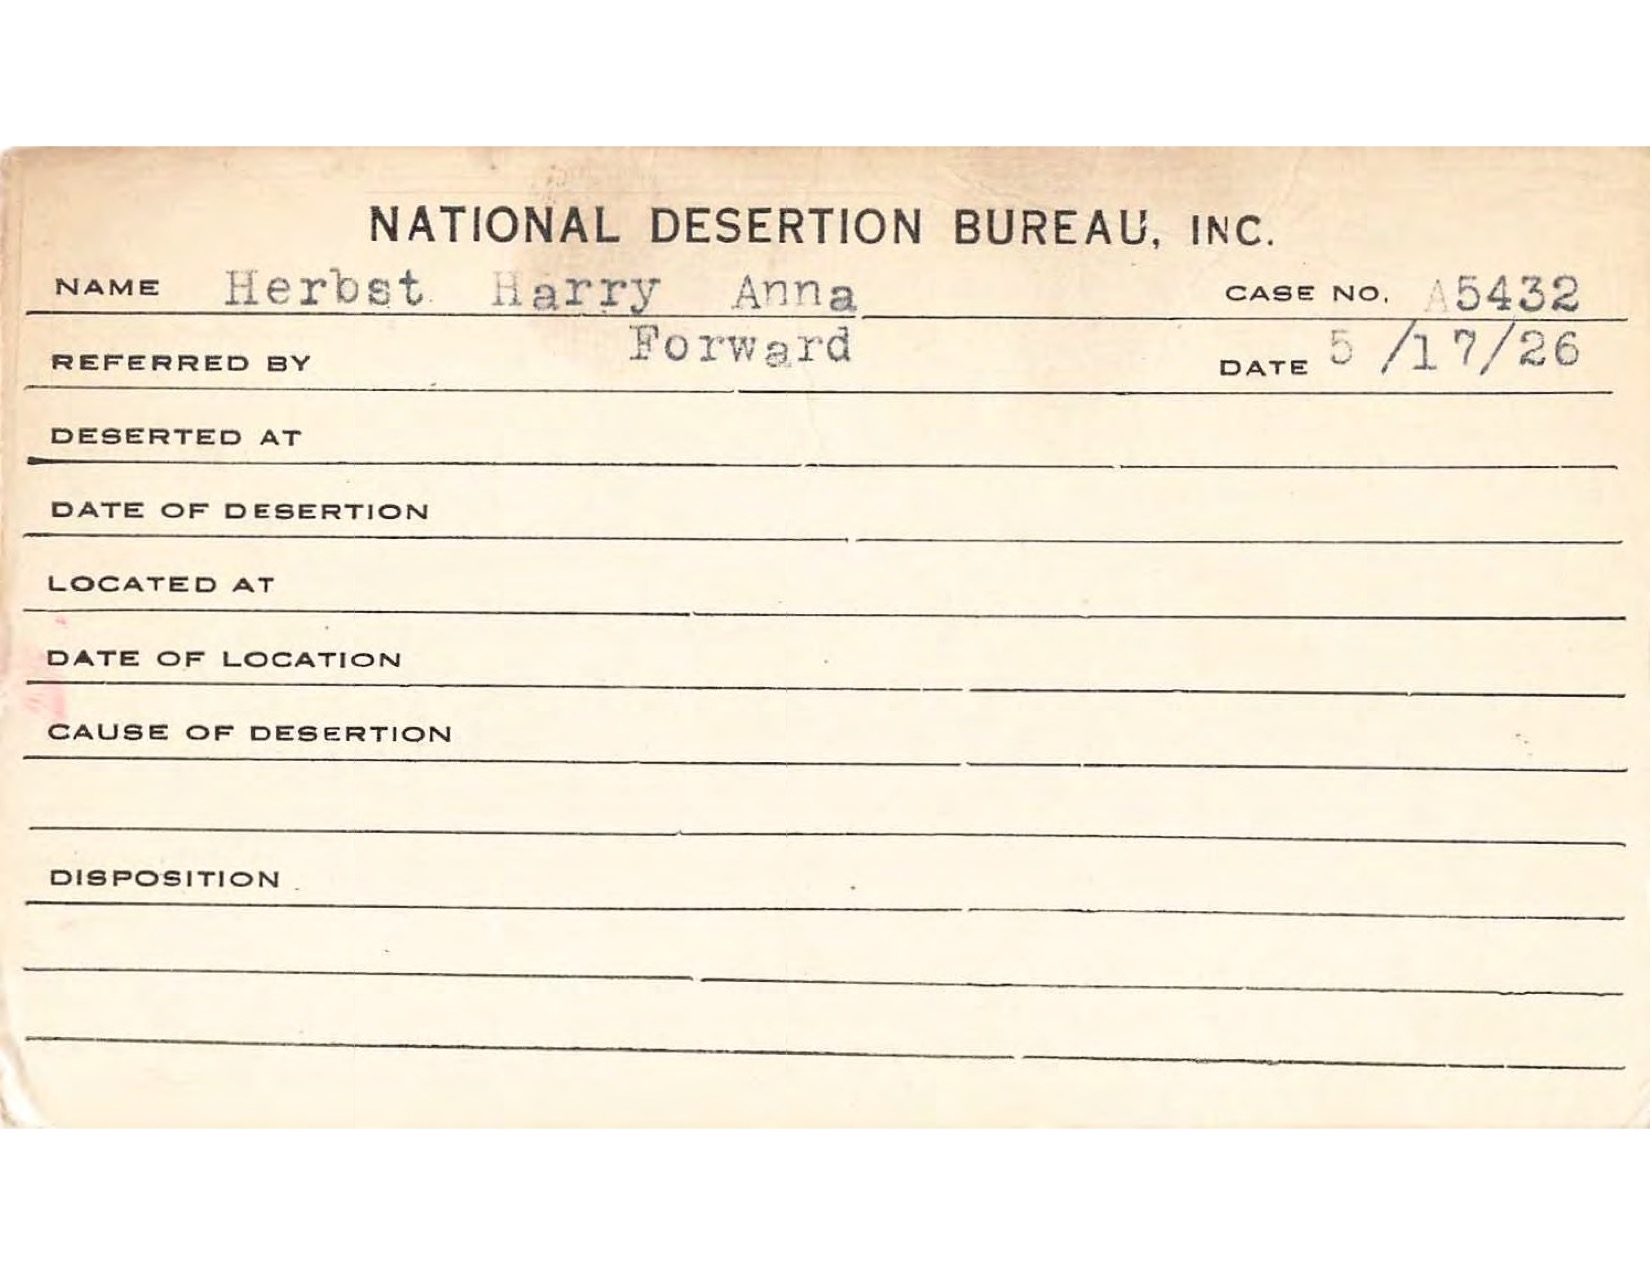 NATIONAL DESERTION BUREAU, INC.
NAME Herbst Harry Anna CASE NO. A5432
REFERRED BY Forward DATE 5/17/26
DESERTED AT
DATE OF DESERTION
LOCATED AT
DATE OF LOCATION
CAUSE OF DESERTION
DISPOSITION